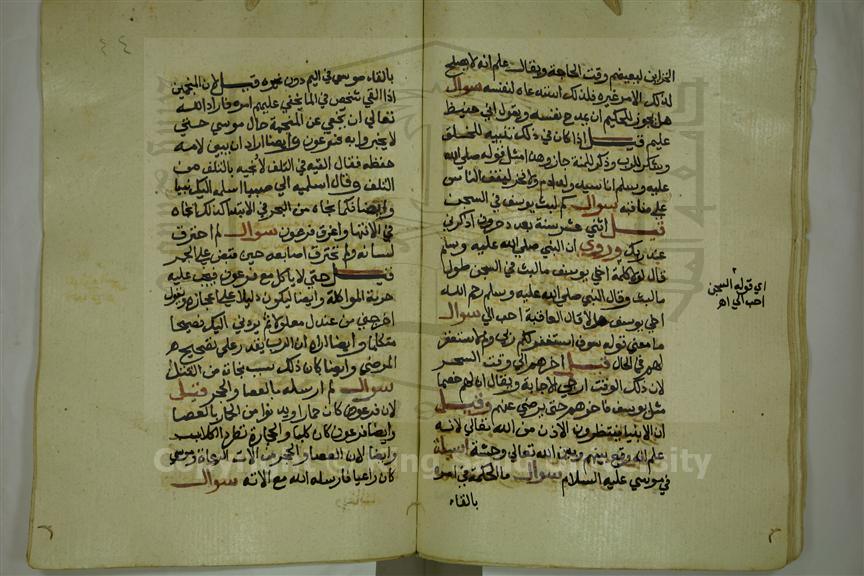 الخزاين لبعيضهم وقت الحاجة ويقال علم انه لا يصلح
لذلك الامر غيره فلذلك استدعاه لنفسه سوال
هل يجوز للحكيم ان يمدح نفسه ويقول اني حفيظ
عليم قيل اذا كان في ذلك تنبيه للخلق
ويشكر للرب وذكر للمنة جاز وهذا مثل قوله صلي الله
عليه وسلم انا سيد ولد ادم ولا فخر ليقف الناس
علي مناقبه سوال كم لبث يوسف في السجن
قيل اثني عشر سنة بعدد حروف اذكرني
عند ربك وروي ان النبي صلي الله عليه وسلم
قال لولا كلمة اخي يوسف ما لبث في السجن طول ما
ما لبث وقال النبي صلي الله عليه وسلم رحم الله
اخي يوسف هلا قال العافية احب الي سوال
ما معني قوله سوف استغفر لكم ربي ولم يستغفر
لهم في الحال قيل اخرهم الي وقت السحر
لان ذلك الوقت ارجي للاجابة ويقال ان لهم خصما
مثل يوسف فاخرهم حتي يرضي عنهم وقيل
ان الانبيا ينتظرون الاذن من الله تعالي لانه
علم انه وقع بينهم وبين الله تعالي وحشة اسيلة
في موسي عليه السلام سوال ما الحكمة في امره
بالقاء
اي قوله السجن
احب الي اهـ
بالقاء موسي في اليم دون غيره قيل لان المنجمين
اذا القي شخص في الما يخفي عليهم امره فاراد الله
تعالي ان يخفي عن المنجمة حال موسي حتي
لا يخبروا به فرعون وايضا اراد ان يبين لامه
حفظه فقال القيه في التلف لانجيه بالتلف من
التلف وقال اسلميه الي صبيا اسلمه اليك نبيا
وايضا فكما نجاه من البحر في الابتدا كذلك نجاه
في الانتها واغرق فرعون سوال لم احترق
لسانه ولم تحترق اصابعه حين قبض علي الجمر
قيل حتي لا ياكل مع فرعون فيجب عليه
حرمة المواكلة وايضا ليكون دليلا علي اعجازه ويقول
اخرجني من عندك معلولا ثم يردني اليك فصيحا
متكلما وايضا اراه ان الرب يقدر علي تصحيح
المرضي وايضا كان ذلك سبب نجاته من القتل
سوال لم ارسله بالعصا والحجر قيل
لان فرعون كان حمارا وبد نوا من الحمار بالعصا
وايضا فرعون كان كلبا والحجارة تطرد الكلاب
وايضا لان العصا والحجر من الات الرعاة وموسي
كان راعيا فارسله الله مع الاته سوال